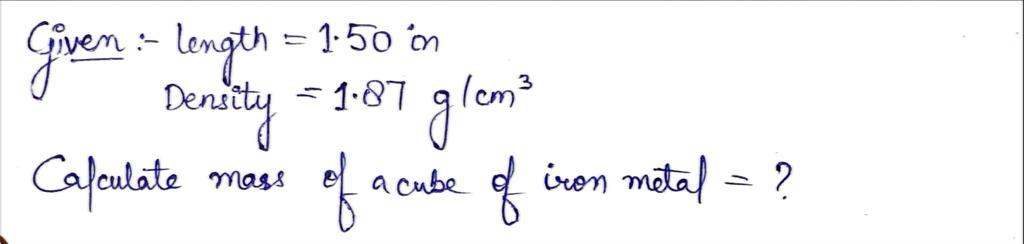 Given :- length = 1.50 in
Density = 1.87 g/cm³
Calculate mass of a cube of iron metal = ?